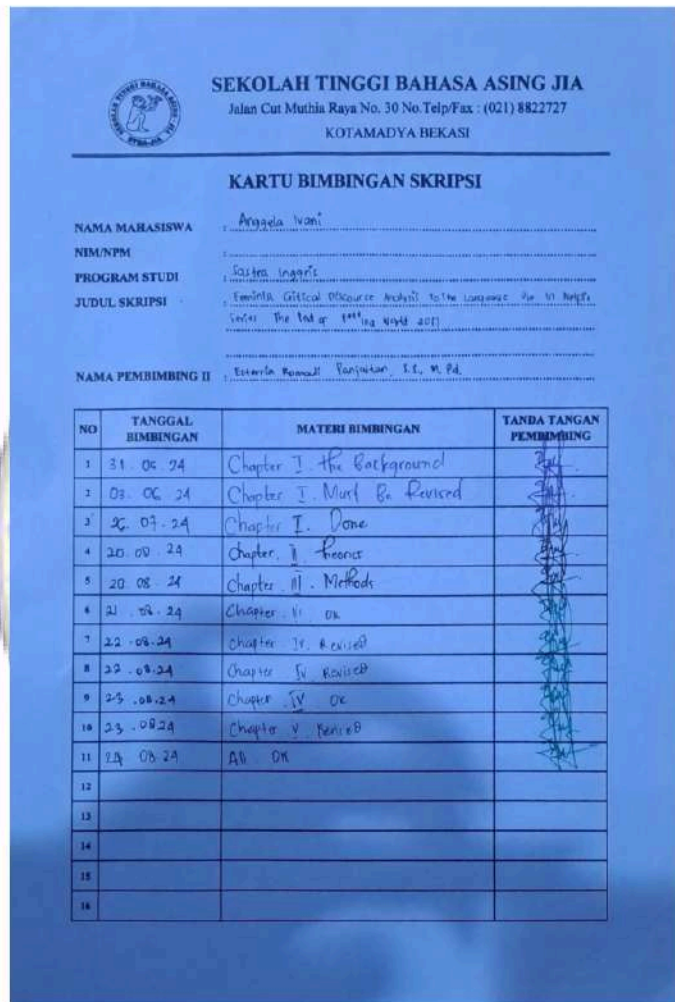 SEKOLAH TINGGI BAHASA ASING JIA
Jalan Cut Muthia Raya No. 30 No.Telp/Fax : (021) 8822727
KOTAMADYA BEKASI
KARTU BIMBINGAN SKRIPSI
NAMA MAHASISWA : Anggela Ivani
NIM/NPM :
PROGRAM STUDI : Sastra Inggris
JUDUL SKRIPSI : Critical Discourse Analysis to the Language in
Series The End of The World 2017
NAMA PEMBIMBING II : Romauli Panjaitan, S.S., M.Pd.
NO TANGGAL BIMBINGAN MATERI BIMBINGAN TANDA TANGAN PEMBIMBING
1 Chapter I. the Background
2 03. 06 24 Chapter I. Must Be Revised
3 26. 07. 24 Chapter I. Done
4 24 Chapter. II
5 20 08. 24 Chapter III. Methods
6 21 . 08. 24 Chapter OK
7 22 .08.24 Chapter IV. Revised
8 22 .08.24 Chapter IV Revised
9 23 .08.24 Chapter IV OK
10 23 .08.24 Chapter V Revised
11 24 08 24 All OK
12
13
14
15
16